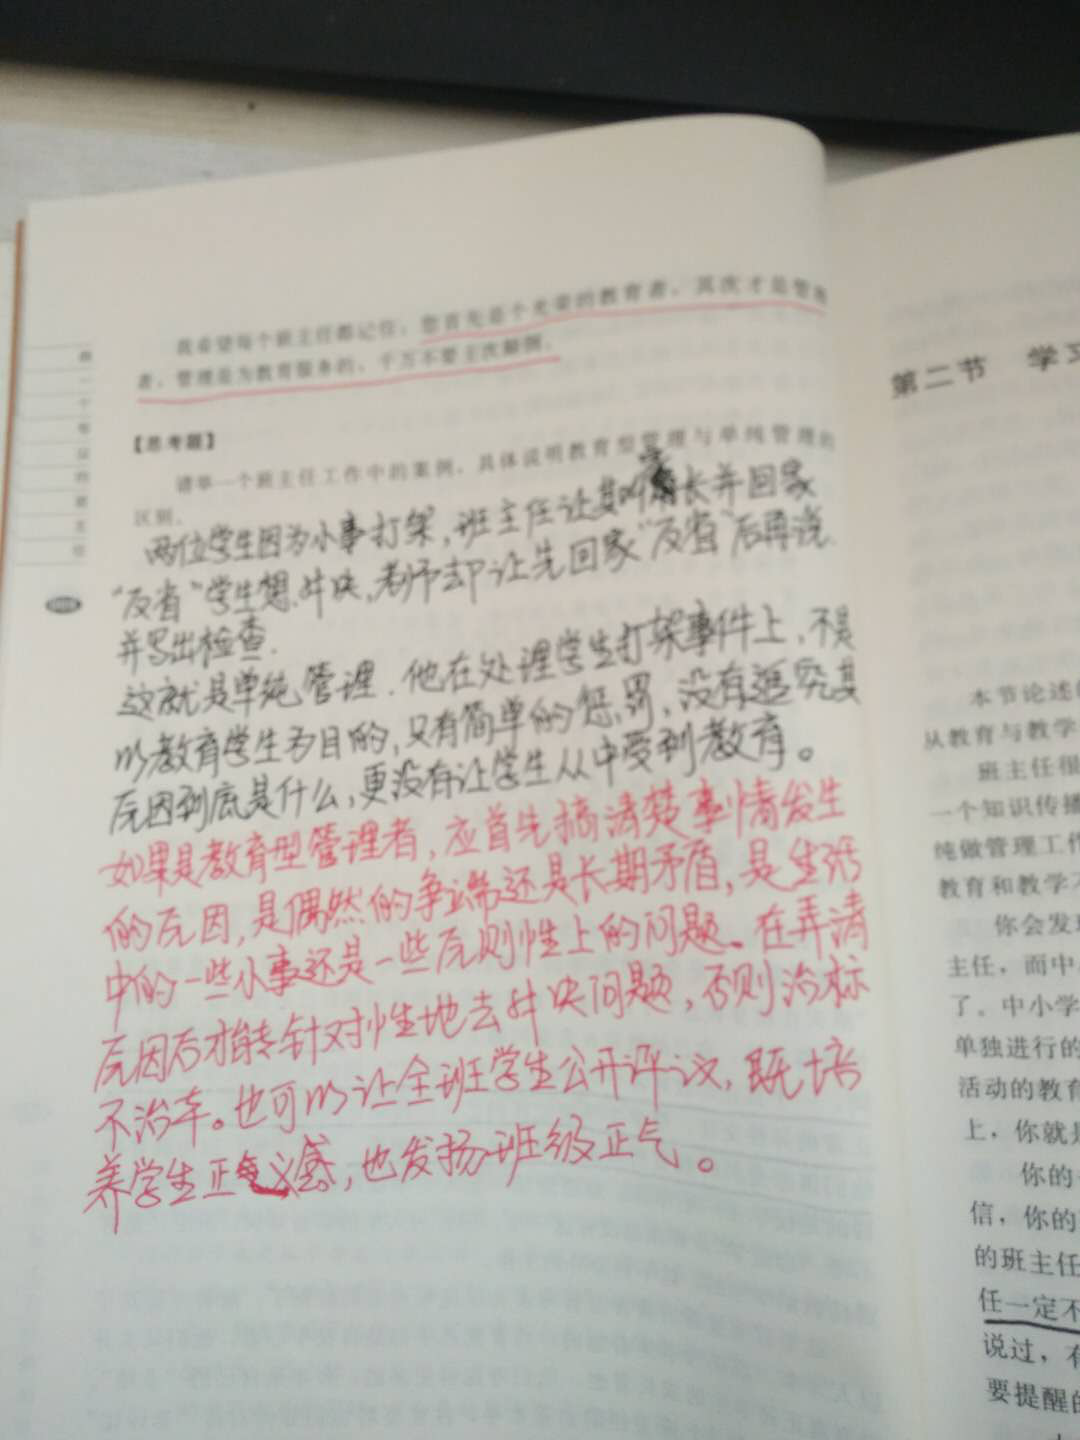 我希望每个班主任都记住：您首先是个光荣的教育者，其次才是管理
者，管理是为教育服务的，千万不要主次颠倒。
【思考题】
请举一个班主任工作中的案例，具体说明教育型管理与单纯管理的
区别。
两位学生因为小事打架，班主任让其叫家长并回家
“反省”学生想解决，老师却让先回家“反省”后再说.
并写出检查.
这就是单纯管理.他在处理学生打架事件上，不是
以教育学生为目的，只有简单的惩罚，没有追究其
原因到底是什么，更没有让学生从中受到教育。
如果是教育型管理者，应首先搞清楚事情发生
的原因，是偶然的争端还是长期矛盾，是生活
中的一些小事还是一些原则性上的问题。在弄清
原因后才能转针对性地去解决问题，否则治标
不治本。也可以让全班学生公开评议，既培
养学生正义感，也发扬班级正气。
第二节 学习
本节论述的
从教育与教学
班主任很
一个知识传播
纯做管理工作
教育和教学不
你会发现
主任，而中
了。中小学
单独进行的
活动的教育
上，你就是
你的
信，你的
的班主任
任一定不
说过，有
要提醒的